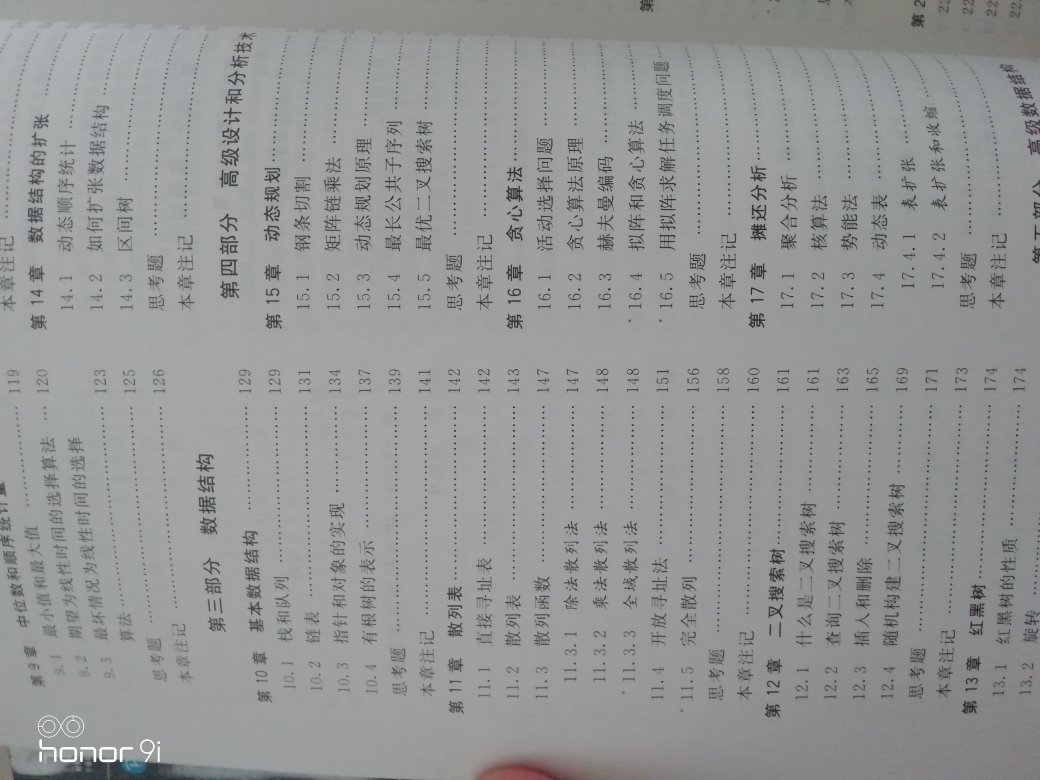 第9章 中位数和顺序统计量
9.1 最小值和最大值 …… 119
9.2 期望为线性时间的选择算法 … 120
9.3 最坏情况为线性时间的选择
算法 …… 123
思考题 …… 125
本章注记 …… 126
第三部分 数据结构
第10章 基本数据结构 …… 129
10.1 栈和队列 …… 129
10.2 链表 …… 131
10.3 指针和对象的实现 …… 134
10.4 有根树的表示 …… 137
思考题 …… 139
本章注记 …… 141
第11章 散列表 …… 142
11.1 直接寻址表 …… 142
11.2 散列表 …… 143
11.3 散列函数 …… 147
11.3.1 除法散列法 …… 147
11.3.2 乘法散列法 …… 148
*11.3.3 全域散列法 …… 148
11.4 开放寻址法 …… 151
*11.5 完全散列 …… 156
思考题 …… 158
本章注记 …… 160
第12章 二叉搜索树 …… 161
12.1 什么是二叉搜索树 …… 161
12.2 查询二叉搜索树 …… 163
12.3 插入和删除 …… 165
12.4 随机构建二叉搜索树 …… 169
思考题 …… 171
本章注记 …… 173
第13章 红黑树 …… 174
13.1 红黑树的性质 …… 174
13.2 旋转
本章注记 ……
第14章 数据结构的扩张
14.1 动态顺序统计 ……
14.2 如何扩张数据结构 ……
14.3 区间树 ……
思考题 ……
本章注记 ……
第四部分 高级设计和分析技术
第15章 动态规划 ……
15.1 钢条切割 ……
15.2 矩阵链乘法 ……
15.3 动态规划原理 ……
15.4 最长公共子序列 ……
15.5 最优二叉搜索树 ……
思考题 ……
本章注记 ……
第16章 贪心算法 ……
16.1 活动选择问题 ……
16.2 贪心算法原理 ……
16.3 赫夫曼编码 ……
*16.4 拟阵和贪心算法 ……
*16.5 用拟阵求解任务调度问题 …
思考题 ……
本章注记 ……
第17章 摊还分析 ……
17.1 聚合分析 ……
17.2 核算法 ……
17.3 势能法 ……
17.4 动态表 ……
17.4.1 表扩张 ……
17.4.2 表扩张和收缩 ……
思考题 ……
本章注记 ……
高级数据结构
honor 9i